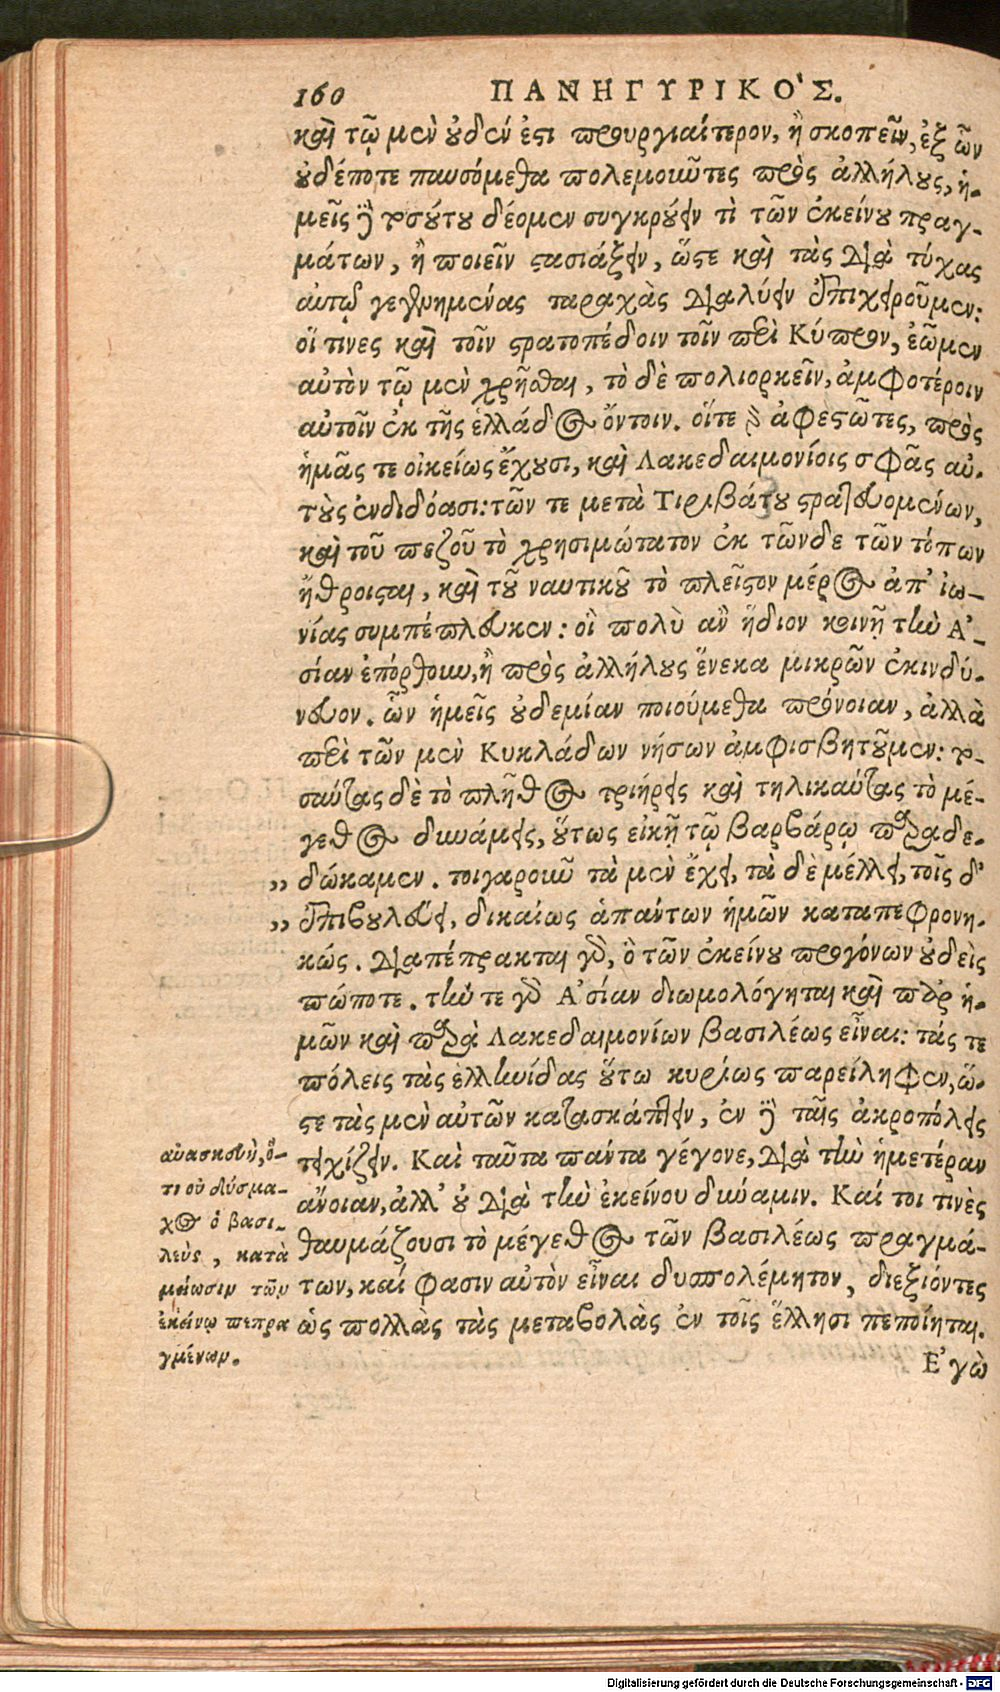 160 ΠΑΝΗΓΥΡΙΚΟ'Σ.
καὶ τῷ μὲν οὐδέν ἐστι προυργιαίτερον, ἢ σκοπεῖν, ἐξ ὧν
οὐδέποτε παυσόμεθα πολεμοῦντες πρὸς ἀλλήλους, ἡ-
μεῖς δὲ τοσούτου δέομεν συγκρούειν τὶ τῶν ἐκείνου πραγ-
μάτων, ἢ ποιεῖν στασιάζειν, ὥστε καὶ τὰς διὰ τύχας
αὐτῷ γεγενημένας ταραχὰς διαλύειν ἐπιχειροῦμεν:
οἵ τινες καὶ τοῖν στρατοπέδοιν τοῖν περὶ Κύπρον, ἐῶμεν
αὐτὸν τῷ μὲν χρῆσθαι, τὸ δὲ πολιορκεῖν, ἀμφοτέροιν
αὐτοῖν ἐκ τῆς ἑλλάδος ὄντοιν. οἵτε γὰρ ἀφεστῶτες, πρὸς
ἡμᾶς τε οἰκείως ἔχουσι, καὶ Λακεδαιμονίοις σφᾶς αὐ-
τοὺς ἐνδιδόασι: τῶν τε μετὰ Τιριβάτου στρατευομένων,
καὶ τοῦ πεζοῦ τὸ χρησιμώτατον ἐκ τῶνδε τῶν τόπων
ἤθροισται, καὶ τοῦ ναυτικοῦ τὸ πλεῖστον μέρος ἀπ' ἰω-
νίας συμπέπλευκεν: οἳ πολὺ ἂν ἥδιον κοινῇ τὴν Ἀ-
σίαν ἐπόρθουν, ἢ πρὸς ἀλλήλους ἕνεκα μικρῶν ἐκινδύ-
νευον. ὧν ἡμεῖς οὐδεμίαν ποιούμεθα πρόνοιαν, ἀλλὰ
περὶ τῶν μὲν Κυκλάδων νήσων ἀμφισβητοῦμεν: το-
σαύτας δὲ τὸ πλῆθος τριήρεις καὶ τηλικαύτας τὸ μέ-
γεθος δυνάμεις, οὕτως εἰκῇ τῷ βαρβάρῳ παραδε-
„ δώκαμεν. τοιγαροῦν τὰ μὲν ἔχει, τὰ δὲ μέλλει, τοῖς δ'
„ ἐπιβουλεύει, δικαίως ἁπάντων ἡμῶν καταπεφρονη-
κώς. διαπέπρακται γὰρ, ὃ τῶν ἐκείνου προγόνων οὐδεὶς
πώποτε. τήν τε γὰρ Ἀσίαν διωμολόγηται καὶ παρ' ἡ-
μῶν καὶ παρὰ Λακεδαιμονίων βασιλέως εἶναι: τάς τε
πόλεις τὰς ἑλληνίδας οὕτω κυρίως παρείληφεν, ὥ-
στε τὰς μὲν αὐτῶν κατασκάπτειν, ἐν δὲ ταῖς ἀκροπόλεις
τειχίζειν. Καὶ ταῦτα πάντα γέγονε, διὰ τὴν ἡμετέραν
ἄνοιαν, ἀλλ' οὐ διὰ τὴν ἐκείνου δύναμιν. Καί τοι τινὲς
θαυμάζουσι τὸ μέγεθος τῶν βασιλέως πραγμά-
των, καί φασιν αὐτὸν εἶναι δυσπολέμητον, διεξιόντες
ὡς πολλὰς τὰς μεταβολὰς ἐν τοῖς ἕλλησι πεποίηται.
Ἐγὼ
ἀνασκευὴ, ὅ-
τι οὐ δύσμα-
χος ὁ βασι-
λεύς, κατὰ
μείωσιν τῶν
ἐκείνῳ πεπρα
γμένων.
Digitalisierung gefördert durch die Deutsche Forschungsgemeinschaft - DFG